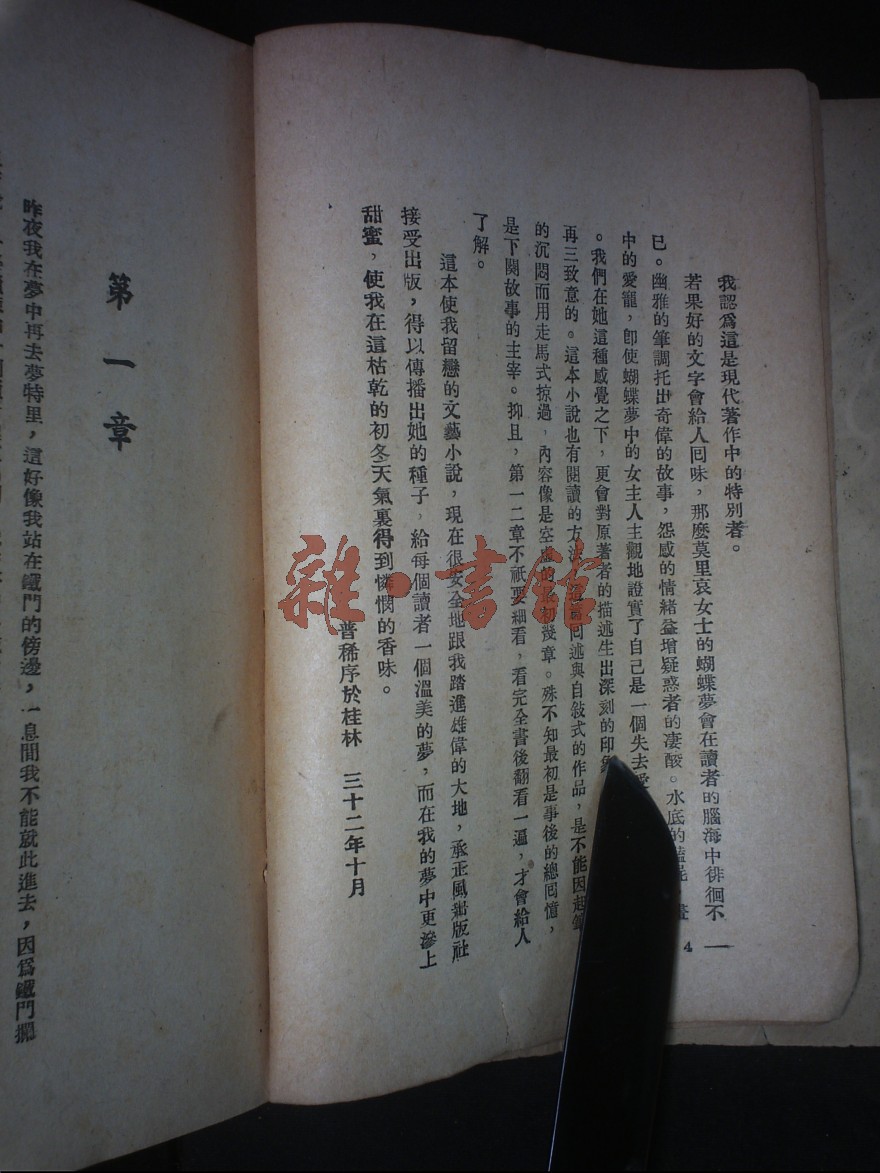 我認爲這是現代著作中的特別者。
若果好的文字會給人囘味，那麼莫里哀女士的蝴蝶夢會在讀者的腦海中徘徊不
已。幽雅的筆調托出奇偉的故事，怨感的情緒益增疑惑者的凄酸。水底的
中的愛寵，卽使蝴蝶夢中的女主人主觀地證實了自己是一個失去
。我們在她這種感覺之下，更會對原著者的描述生出深刻的印
再三致意的。這本小說也有閱讀的方法，囘述與自敍式的作品，是不能因起
的沉悶而用走馬式掠過，內容像是空虛的幾章。殊不知最初是事後的總囘憶，
是下闋故事的主宰。抑且，第一二章不祇要細看，看完全書後翻看一遍，才會給人
了解。
這本使我留戀的文藝小說，現在很安全地跟我踏進雄偉的大地，承正風出版社
接受出版，得以傳播出她的種子，給每個讀者一個溫美的夢，而在我的夢中更滲上
甜蜜，使我在這枯乾的初冬天氣裏得到憐憫的香味。
普稀序於桂林　三十二年十月
4
雜·書館
第一章
昨夜我在夢中再去夢特里，這好像我站在鐵門的傍邊，一息間我不能就此進去，因爲鐵門